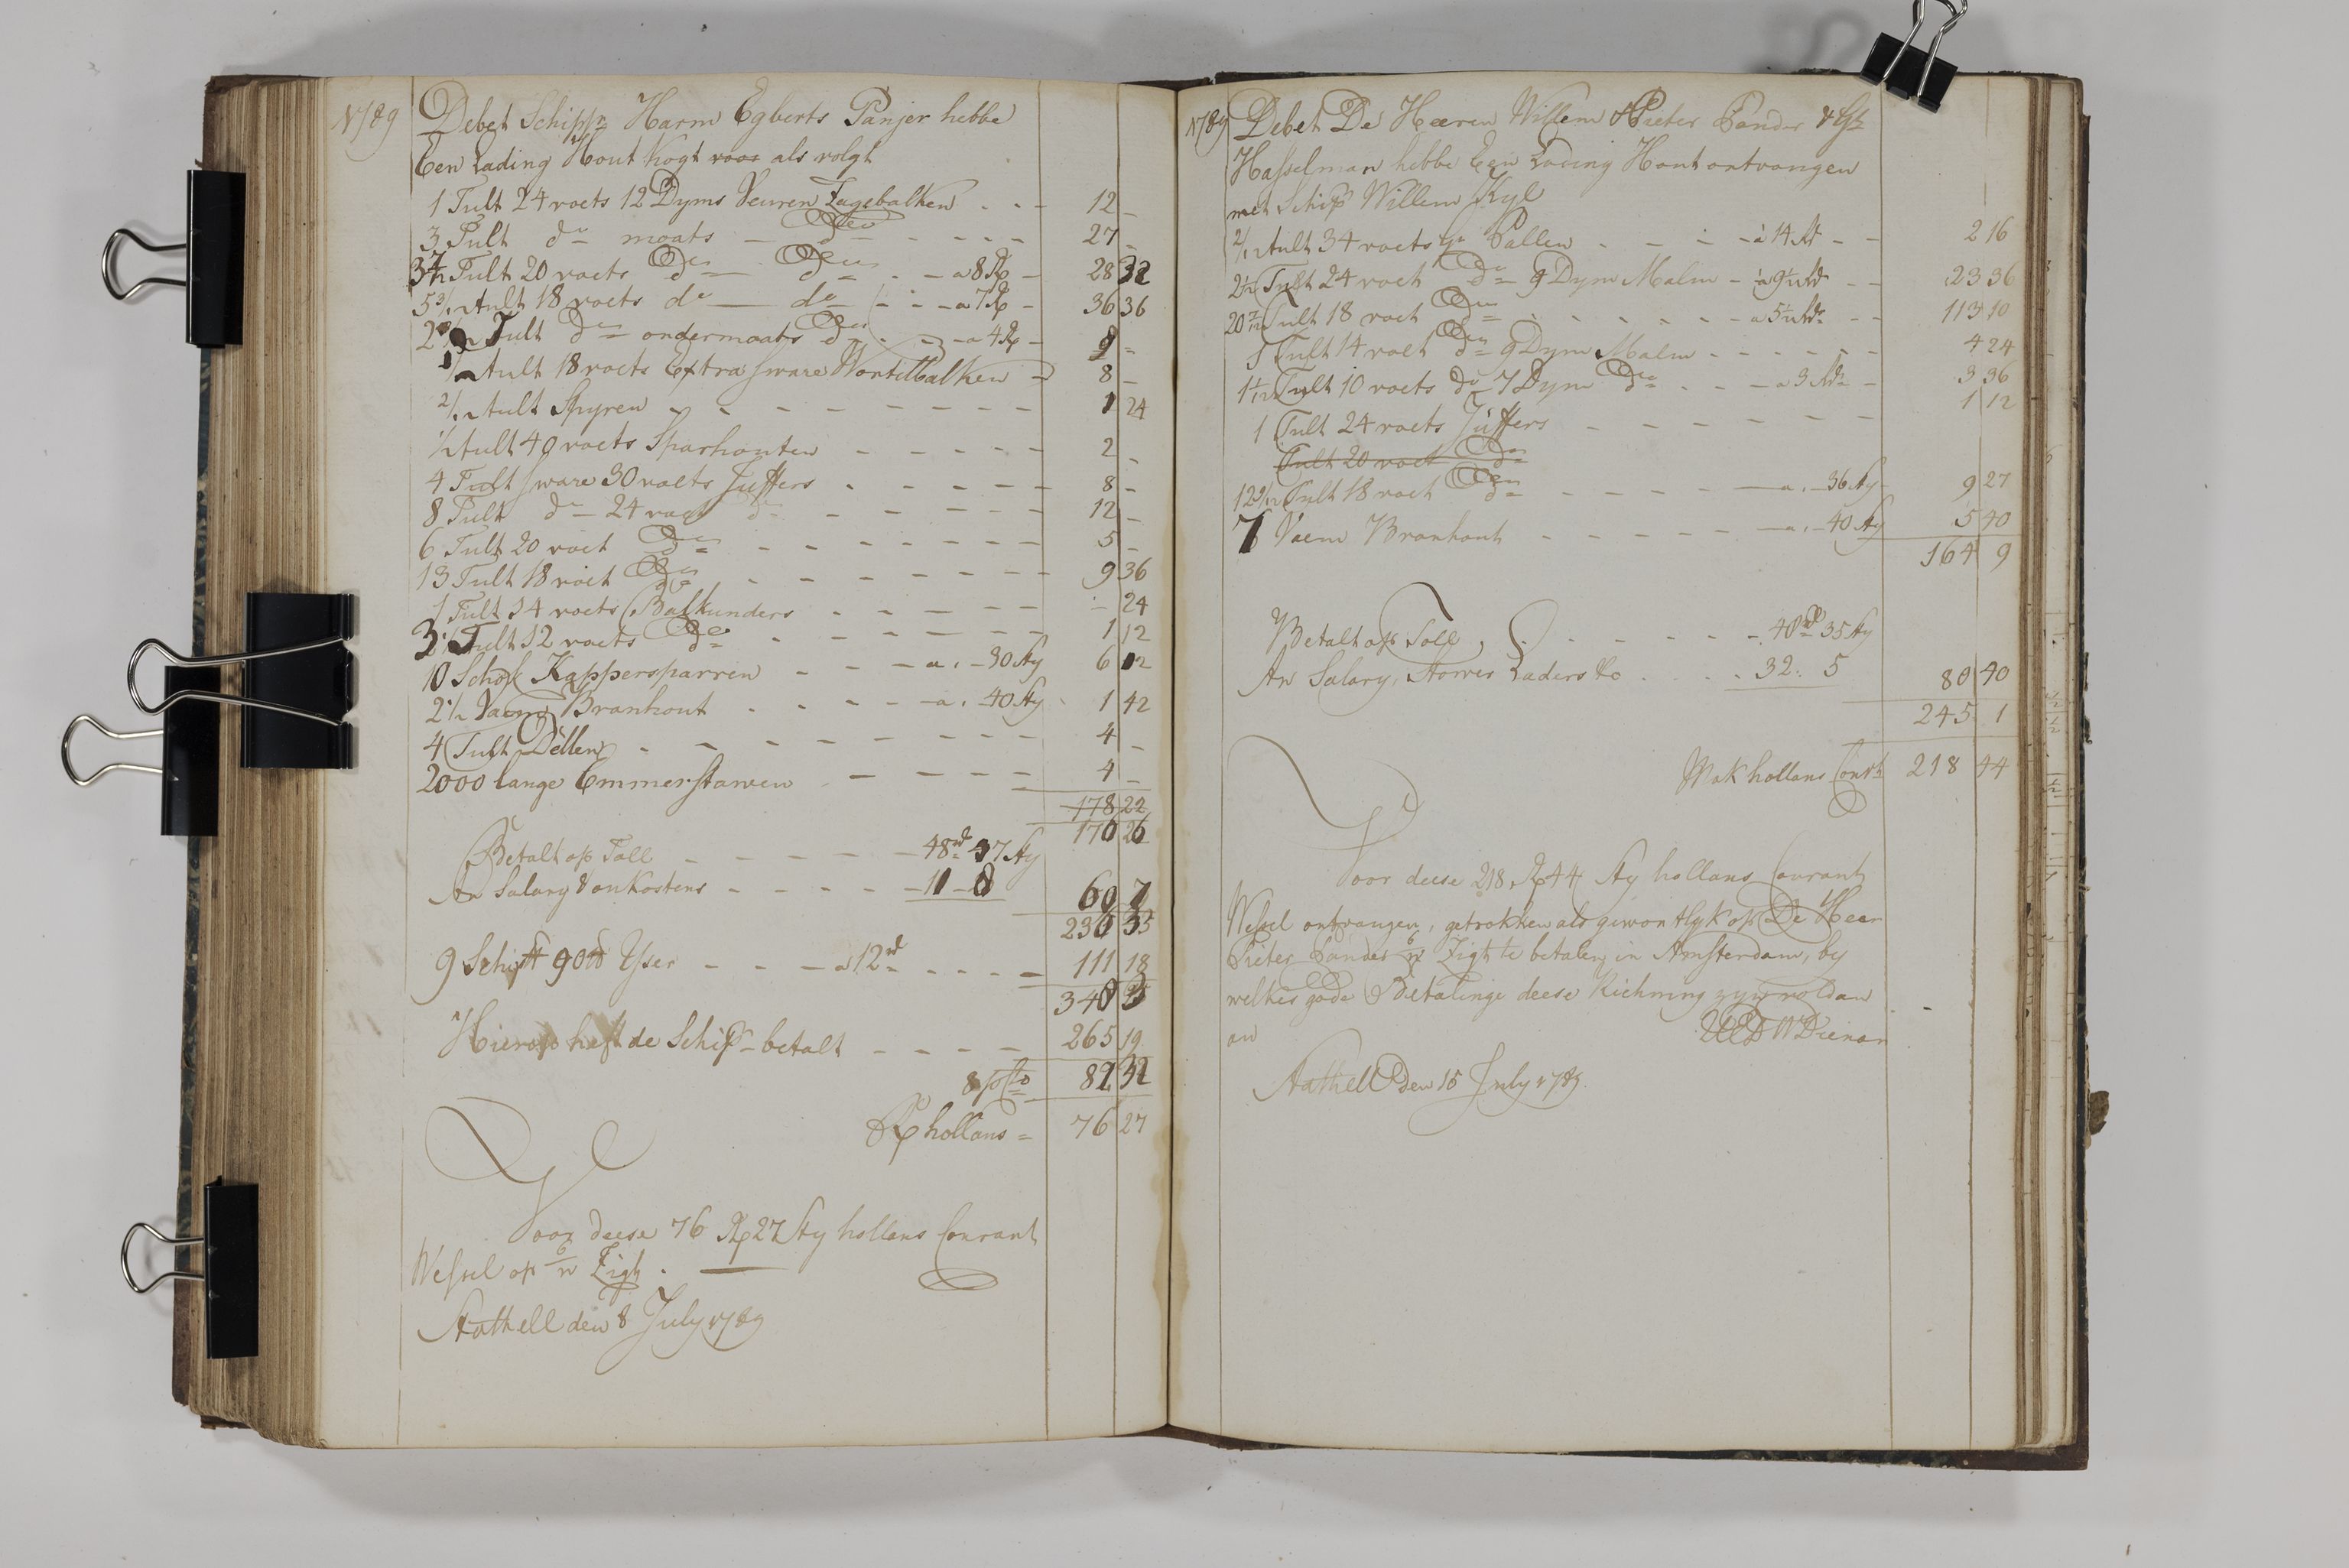 1789 Debet Schippr Harm Egberts Panjer hebbe
Een Lading Hout kogt voor als volgt
1 Tult 24 voets 12 Dyms Veuren Zagebalken 12 –
3 Tult do maats do 27 –
3 7/12 Tult 20 voets do do a 8 R 28 32
5 3/12 Tult 18 voets do do a 7 R 36 36
Tult do ondermaats do a 4 R 9 =
Tult 18 voets Extra sware Wortelbalken 8 –
2/12 Tult Spyren 1 24
1/2 Tult 40 voets Sparhouten 2 –
4 Tult sware 30 voets Juffers 8 –
8 Tult do 24 voet do 12 –
6 Tult 20 voet do 5 –
13 Tult 18 voet do 9 36
1 Tult 14 voets Balkunders – 24
Tult 12 voets do 1 12
10 Schok Kappersparren a 30 sty 6 12
2 1/4 Vaem Branhout a 40 sty 1 42
4 Tult Dellen 4 –
2000 lange Emmerstawen 4 –
178 22
170 26
Betalt op Toll 48 rd 47 sty
An Salary & onkostens 11 – 8
60 7
230 33
9 Schipt 90 td Yser a 12 rd 111 18
340 3
Hierop heft de Schipr betalt 265 19
8 pCto 82 32
R hollans = 76 27
Voor deese 76 R 27 sty hollans Courant
Wessel op 6/w Zigh.
Stathell den 8 July 1789
1789 Debet De Heeren Willem & Pieter Sander &
Hasselman hebbe Een Lading Hout ontvangen
met Schipr Willem Kyl
2/12 Tult 34 voets Ballen a 14 Rd 2 16
Tult 24 voet do 9 Dym Malm a 9 1/2 Rd 23 36
20 7/12 Tult 18 voet do a 5 1/2 Rd 113 10
1 Tult 14 voet do 9 Dym Malm 4 24
Tult 10 voets do 7 Dym do a 3 Rd 3 36
1 Tult 24 voets Juffers 1 12
Tult 20 voet do
12 9/12 Tult 18 voet do a 36 sty 9 27
7 Vaem Branhout a 40 sty 5 40
164 9
Betalt op Toll 48 rd 35 sty
An Salary, Stower Laders &c 32. 5
80 40
245 1
Mak hollans Court 218 44
Voor deese 218 R 44 sty hollans Courant
Wessel ontvangen, getrokken als gewontlyk op De Heer
Pieter Sander 6/w Zigh te betalen in Amsterdam, by
welkes gode Betalinge deese Riekning zyn voldan
an UEDWDienar
Stathell den 15 July 1789.